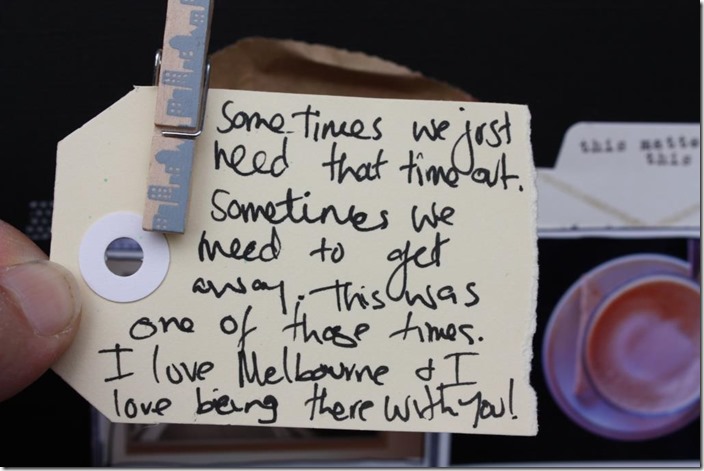 Sometimes we just
need that time out.
Sometimes we
need to get
away. This was
one of those times.
I love Melbourne & I
love being there with you!
this matte
this